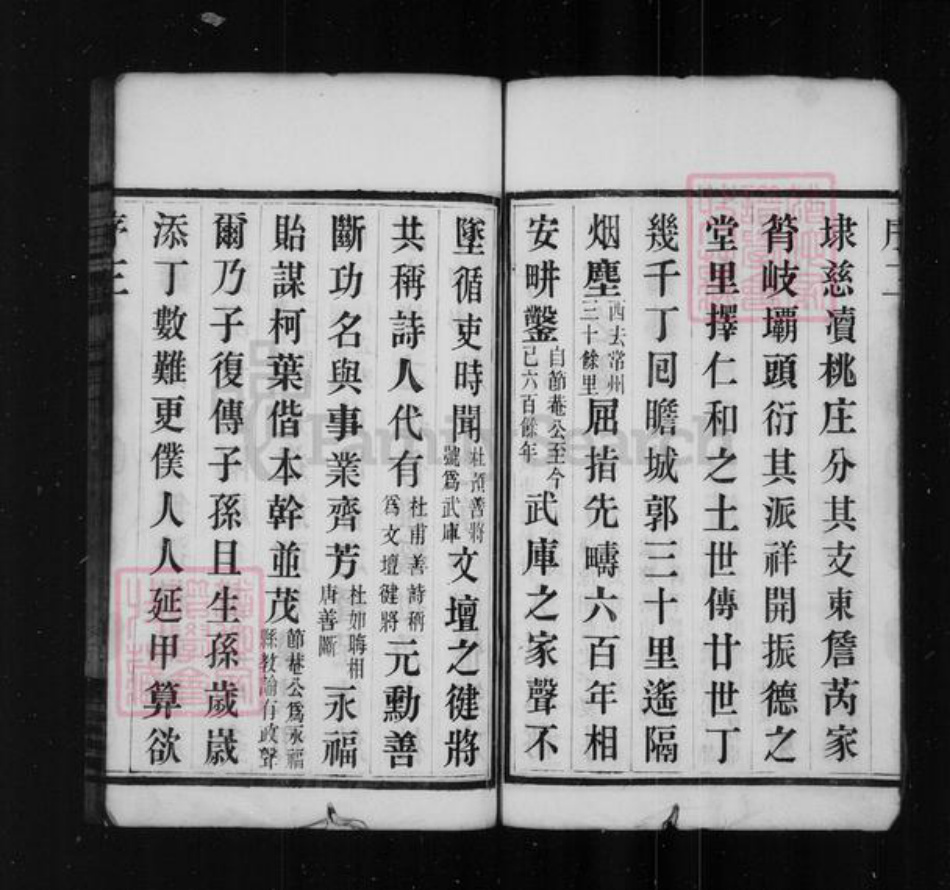 序二
埭慈瀆桃庄分其支東詹芮家
筲岐壩頭衍其派祥開振德之
堂里擇仁和之土世傳廿世丁
幾千丁囘瞻城郭三十里遙隔
烟塵西去常州三十餘里屈指先疇六百年相
安畊鑿自節菴公至今已六百餘年武庫之家聲不
墜循吏時聞杜預善將號爲武庫文壇之健將
共稱詩人代有杜甫善詩稱爲文壇健將元勳善
斷功名與事業齊芳杜如晦相唐善斷永福
貽謀柯葉偕本幹並茂節菴公爲永福縣教諭有政聲
爾乃子復傳子孫且生孫歲歲
添丁數難更僕人人延甲算欲
序三
FamilySearch